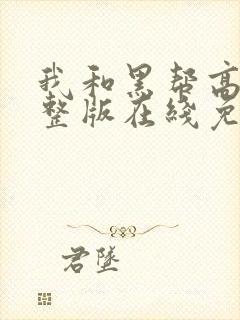 我和黑帮高
整版在线免
君墜